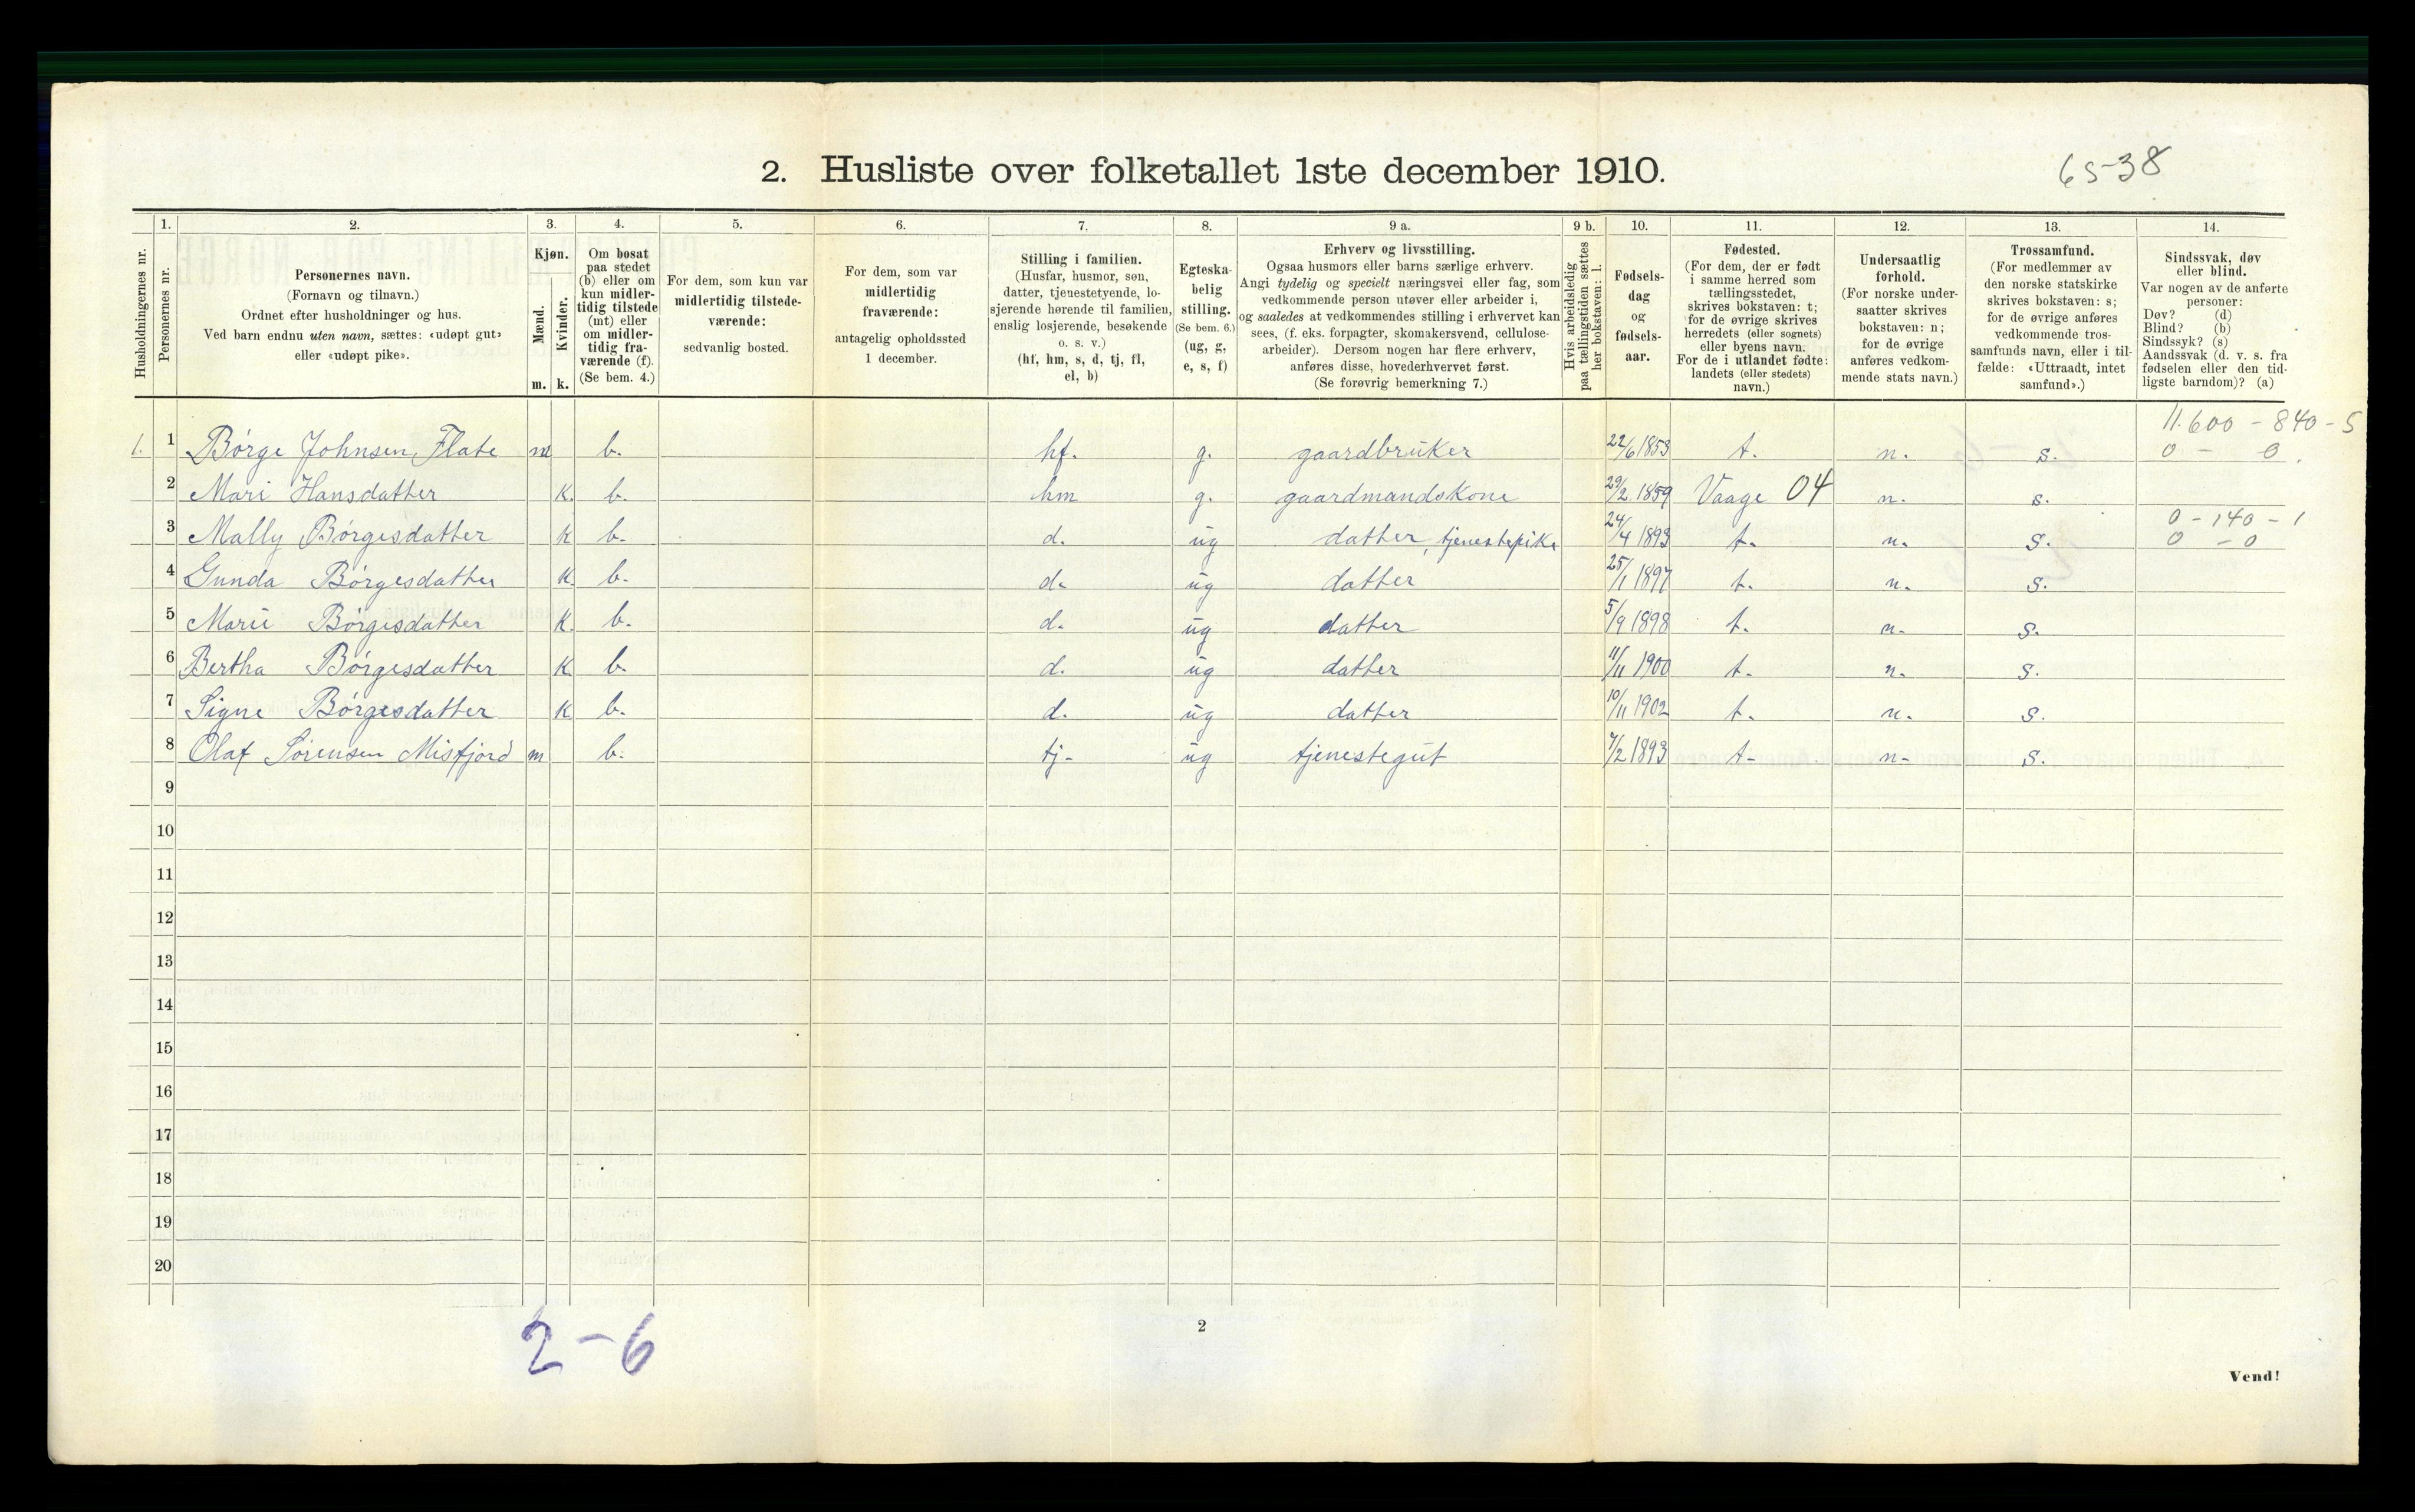 2. Husliste over folketallet 1ste december 1910.
65-38
1. 2. 3. 4. 5. 6. 7. 8. 9 a. 9 b. 10. 11. 12. 13. 14.
Husholdningernes nr.
Personernes nr.
Personernes navn.
(Fornavn og tilnavn.)
Ordnet efter husholdninger og hus.
Ved barn endnu uten navn, sættes: «udøpt gut»
eller «udøpt pike».
Kjøn.
Mænd.
Kvinder.
m. k.
Om bosat
paa stedet
(b) eller om
kun midler-
tidig tilstede
(mt) eller
om midler-
tidig fra-
værende (f).
(Se bem. 4.)
For dem, som kun var
midlertidig tilstede-
værende:
sedvanlig bosted.
For dem, som var
midlertidig
fraværende:
antagelig opholdssted
1 december.
Stilling i familien.
(Husfar, husmor, søn,
datter, tjenestetyende, lo-
sjerende hørende til familien,
enslig losjerende, besøkende
o. s. v.)
(hf, hm, s, d, tj, fl,
el, b)
Egteska-
belig
stilling.
(Se bem. 6.)
(ug, g,
e, s, f)
Erhverv og livsstilling.
Ogsaa husmors eller barns særlige erhverv.
Angi tydelig og specielt næringsvei eller fag, som
vedkommende person utøver eller arbeider i,
og saaledes at vedkommendes stilling i erhvervet kan
sees, (f. eks. forpagter, skomakersvend, cellulose-
arbeider). Dersom nogen har flere erhverv,
anføres disse, hovederhvervet først.
(Se forøvrig bemerkning 7.)
Hvis arbeidsledig
paa tællingstiden sættes
her bokstaven: l.
Fødsels-
dag
og
fødsels-
aar.
Fødested.
(For dem, der er født
i samme herred som
tællingsstedet,
skrives bokstaven: t;
for de øvrige skrives
herredets (eller sognets)
eller byens navn.
For de i utlandet fødte:
landets (eller stedets)
navn.)
Undersaatlig
forhold.
(For norske under-
saatter skrives
bokstaven: n;
for de øvrige
anføres vedkom-
mende stats navn.)
Trossamfund.
(For medlemmer av
den norske statskirke
skrives bokstaven: s;
for de øvrige anføres
vedkommende tros-
samfunds navn, eller i til-
fælde: «Uttraadt, intet
samfund».)
Sindssvak, døv
eller blind.
Var nogen av de anførte
personer:
Døv? (d)
Blind? (b)
Sindssyk? (s)
Aandssvak (d. v. s. fra
fødselen eller den tid-
ligste barndom)? (a)
11.600 - 840 - 5
1. 1 Børge Johnsen Flate m b. hf. g. gaardbruker 22/6 1853 t. n. s. 0 - 0.
2 Mari Hansdatter k. b. hm g. gaardmandskone 29/2 1859 Vaage 04 n. s.
0 - 140 - 1
3 Mally Børgesdatter k b. d. ug datter, tjenestepike 24/4 1893 t. n. s. 0 - 0
4 Gunda Børgesdatter k b. d. ug datter 25/1 1897 t. n. s.
5 Marie Børgesdatter k. b. d. ug datter 5/9 1898 t. n. s.
6 Bertha Børgesdatter k b. d. ug datter 11/11 1900 t. n. s.
7 Signe Børgesdatter k b. d. ug datter 10/11 1902 t. n. s.
8 Olaf Sørensen Misfjord m b. tj. ug tjenestegut 7/2 1893 t. n. s.
9
10
11
12
13
14
15
16
17
18
19
20
2-6
2
Vend!